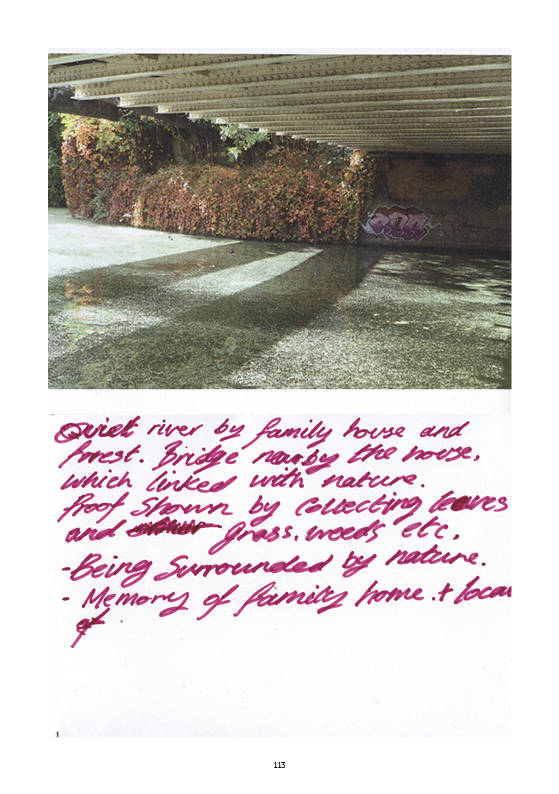 Quiet river by family house and
forest. Bridge nearby the house,
which linked with nature.
Proof Shown by Collecting leaves
and grass, weeds etc.
- Being Surrounded by nature.
- Memory of family home. + local
of
113